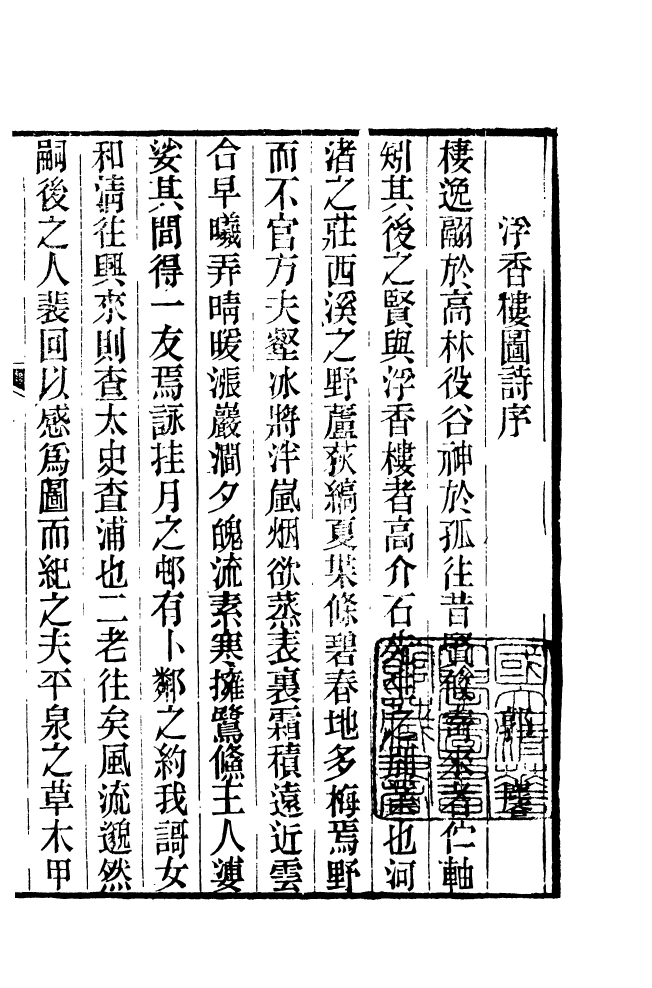 浮香樓圖詩序 郭麐
棲逸翮於高林役谷神於孤往昔賢來者伫軸
矧其後之賢與浮香樓者高介石之別業也河
渚之莊西溪之野蘆荻縞夏葉條碧春地多梅焉野
而不官方夫壑冰將泮嵐烟欲蒸表裏霜積遠近雲
合早曦弄晴暖漲巖澗夕魄流素寒擁鷺鯈主人婆
娑其間得一友焉詠挂月之邨有卜鄰之約我謌女
和情往興來則查太史查浦也二老往矣風流邈然
嗣後之人裴回以感爲圖而紀之夫平泉之草木甲